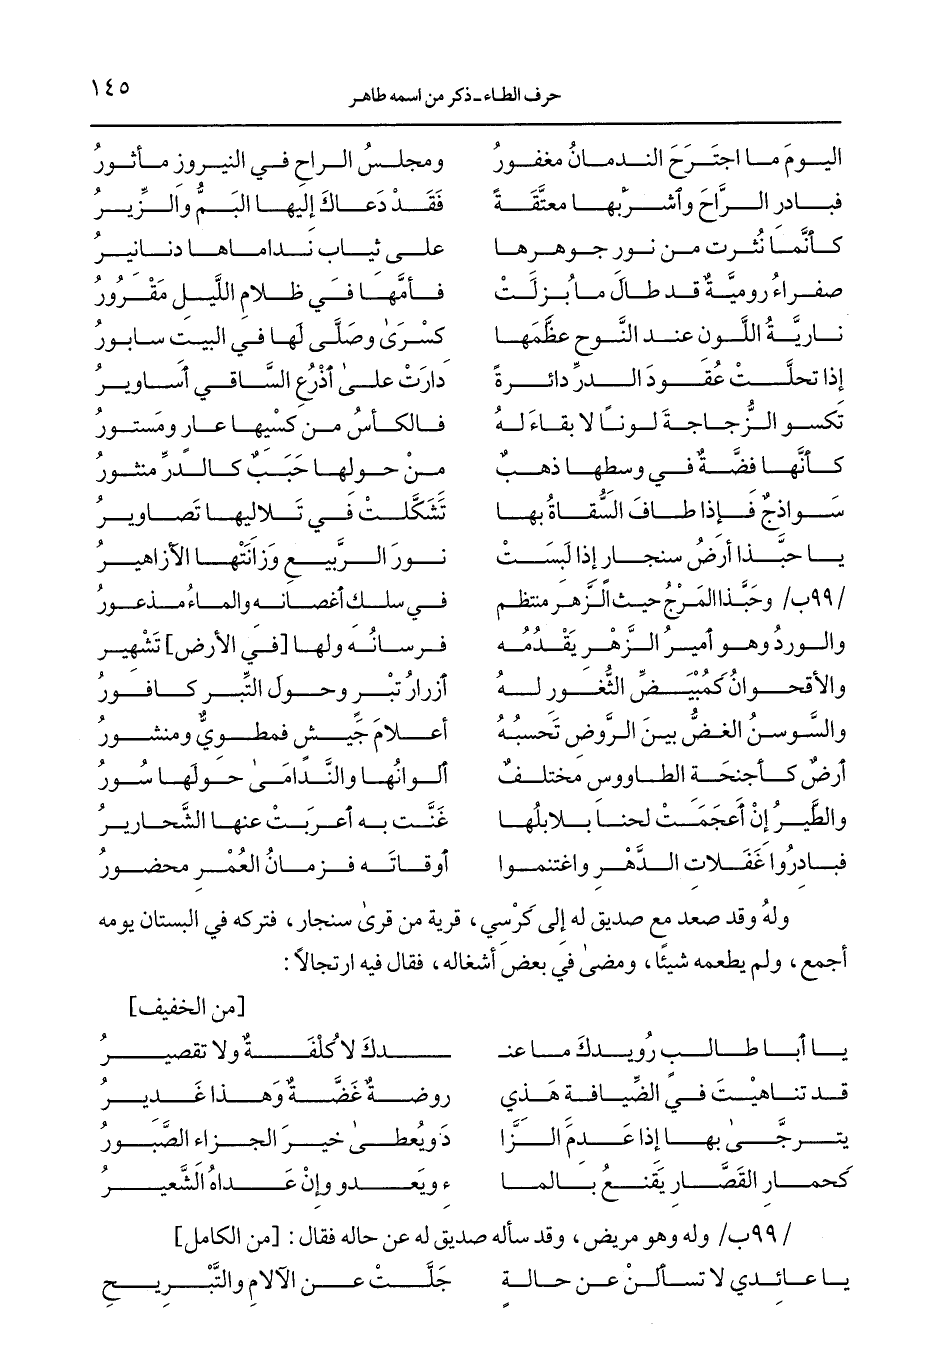 ١٤٥ حرف الطاء ـ ذكر من اسمه طاهر
اليوم ما اجترح الندمان مغفورُ ومجلسُ الراحِ في النيروز مأثورُ
فبادر الرَّاحَ وأشربها معتَّقةً فقَد دعاكَ إليها البَمُّ والزِّيرُ
كأنَّما نُثِرت من نور جوهرها على ثياب نداماها دنانيرُ
صفراء روميةٌ قد طال ما بُزِلَت فأمّها في ظلام اللَّيل مقرُورُ
ناريَّة اللَّون عند الترَّوح عظَّمها كسْرَىٰ وصلَّى لها في البيت سابورُ
إذا تجلَّت عُقودُ الدرِّ دائرةً دارَت علىٰ أذْرُع السَّاقي أساويرُ
تكسو الزُّجاجة لوناً لا بقاءَ لهُ فالكأسُ من كسْبها عارٍ ومستورُ
كأنَّها فضَّةٌ في وسطها ذهبٌ من حولها حَببٌ كالدُّرِّ منثورُ
سواذجٌ فإذا طافَ السُّقاةُ بها تَشَكَّلتْ في تلاليها تصاويرُ
يا حبَّذا أرضُ سنجار إذا لبسَتْ نورَ الرَّبيع وزانَتْها الأزاهيرُ
/٩٩ب/ وحبَّذا المرجُ حيث الزَّهر منتظمٌ في سلك أغصانه والماء مذعورُ
والوردُ وهو أميرُ الزَّهر يقدُمُه فرسانُه ولها [في الأرضِ] تشْهيرُ
والأقحوانُ كمُبيضِّ الثُّغور لهُ أزرارُ تبْر وحول التِّبر كافورُ
والسَّوسنُ الغضُّ بينَ الرَّوض تحسبُهُ أعلامَ جيْش فمطويٌّ ومنشورُ
أرضٌ كأجنحة الطاووس مختلفٌ ألوانُها والنَّدامىٰ حولها سُورُ
والطَّيرُ إنْ أعجَمَت لحناً بلابلُها غنَّت به أعربَت عنها الشَّحاريرُ
فبادرُوا غَفَلات الدَّهر واغتنموا أوقاتَه فزمانُ العُمْر محضُورُ
ولهُ وقد صعد مع صديق له إلى كُرْسي، قرية من قرىٰ سنجار، فتركه في البستان يومه
أجمع، ولم يطعمه شيئاً، ومضىٰ في بعض أشغاله، فقال فيه ارتجالاً:
[من الخفيف]
يا أبا طالب رُويدك ما عنـ ـدكَ لا كُلْفَةٌ ولا تقصيرُ
قد تناهيْتَ في الضِّيافة هَذي روضةٌ غضَّةٌ وَهذا غَديرُ
يترجَّىٰ بها إذا عُدمَ الزَّا دُ ويعطىٰ خيرَ الجزاء الصَّبُورُ
كحمار القصَّار يقْنعُ بالما ء ويعدو وإن عَداهُ الشَّعيرُ
/٩٩ب/ وله وهو مريض، وقد سأله صديق له عن حاله فقال: [من الكامل]
يا عائدي لا تسألَنْ عن حالة جَلَّتْ عن الآلام والتَّبريحِ